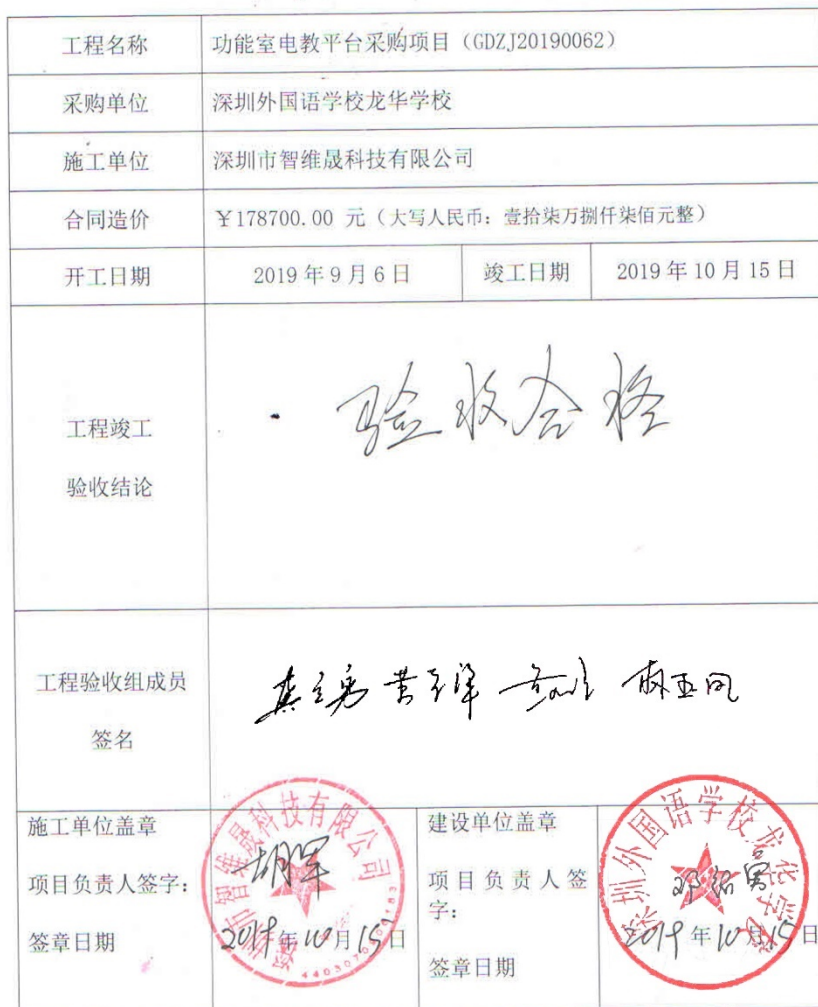 工程名称 功能室电教平台采购项目（GDZJ20190062）
采购单位 深圳外国语学校龙华学校
施工单位 深圳市智维晟科技有限公司
合同造价 ￥178700.00 元（大写人民币：壹拾柒万捌仟柒佰元整）
开工日期 2019 年 9 月 6 日 竣工日期 2019 年 10 月 15 日
工程竣工
验收结论
验收合格
工程验收组成员
签名
施工单位盖章
项目负责人签字：
胡军
签章日期
2019年10月15日
深圳市智维晟科技有限公司
建设单位盖章
项目负责人签
字：
签章日期
2019年10月15日
深圳外国语学校龙华学校